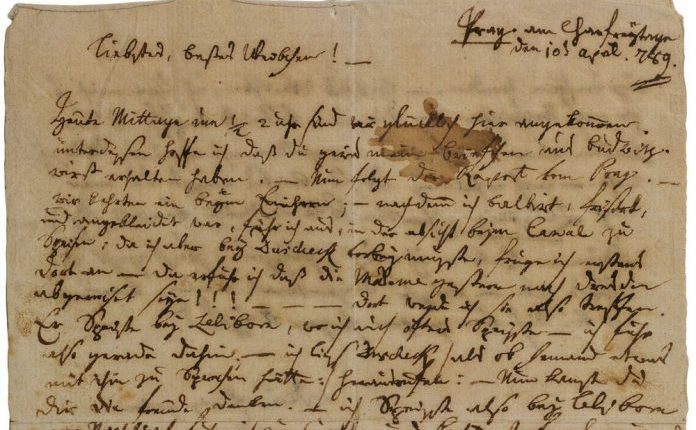 Prag am Charfreytage
den 10t April. 789.
Liebstes, bestes Weibchen! —
Heute Mittags um ½ 2 uhr sind wir glücklich hier angekommen.
unterdessen hoffe ich daß du gewis mein briefchen aus Budwitz
wirst erhalten haben. — Nun folgt der Rapport von Prag. —
wir kehrten ein beym Einhorn; — nachdem ich balbirt, frisirt,
und angekleidet war, fuhr ich aus, in der absicht beym Canal zu
Speisen; da ich aber bey Duscheck vorbeymusste, frug ich erstens
dort an — da erfuhr ich daß die Madame gestern nach dresden
abgereiset seye!!! — — dort werde ich sie also treffen.
Er Speiste bey Leliborn, wo ich auch öfters Speiste — ich fuhr
also gerade dahin. — ich liess Duscheck (als ob Jemand etwas
mit ihm zu Sprechen hätte) herausrufen: — Nun kannst du
dir die freude denken. — ich Speiste also bey Leliborn